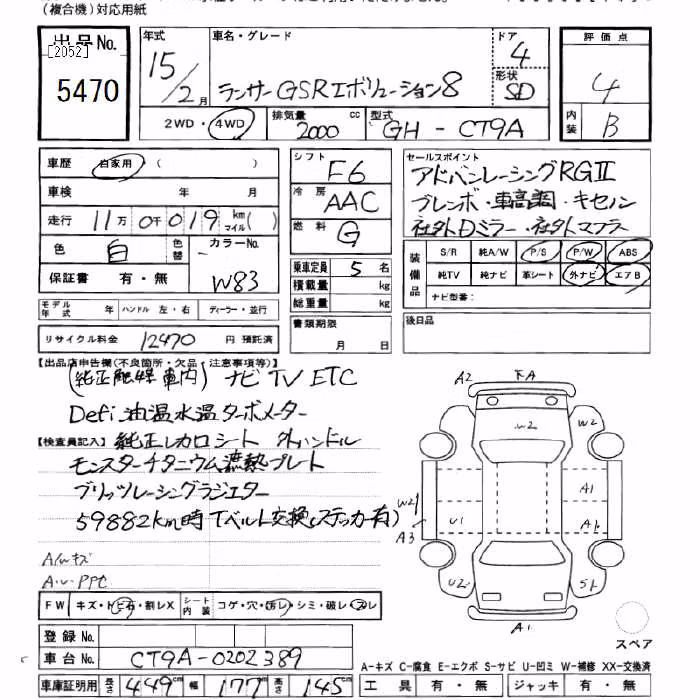 (複合機)対応用紙
出品No.
[2052]
5470
年式 15/2月
車名・グレード
ランサーGSRエボリューション8
ドア 4
形状 SD
評価点 4
内装 B
2WD・4WD
排気量 2000 cc
型式 GH-CT9A
車歴 自家用 ( )
車検 年 月
走行 11万0千019 km マイル( )
色 白 色替
カラーNo. W83
保証書 有・無
シフト F6
冷房 AAC
燃料 G
乗車定員 5 名
積載量 kg
総重量 kg
書類期限 月 日
セールスポイント
アドバンレーシングRGⅡ
ブレンボ・車高調・キセノン
社外Dミラー・社外マフラー
装備品
S/R 純A/W P/S P/W ABS
純TV 純ナビ 革シート 外ナビ エアB
ナビ型番:
後日品
モデル年式 年 ハンドル 左・右 ディーラー・並行
リサイクル料金 12470 円 預託済
【出品店申告欄(不良箇所・欠品・注意事項等)】
(純正触媒車内) ナビ TV ETC
Defi油温水温ターボメーター
【検査員記入】純正レカロシート 外ハンドル
モンスターチタニウム遮熱プレート
ブリッツレーシングラジエター
59882km時Tベルト交換(ステッカー有)
A小キズ
A・U・PPC
FW キズ・トビ石・割レX
シート内装 コゲ・穴・汚レ・シミ・破レ・スレ
A2
W2
W2
A1
W2
A3
U1
A1
U2
S1
A1
スペア
登録No.
車台No. CT9A-0202389
車庫証明用 長さ 449cm 幅 177cm 高さ 145cm
A-キズ C-腐食 E-エクボ S-サビ U-凹ミ W-補修 XX-交換済
工具 有・無 ジャッキ 有・無